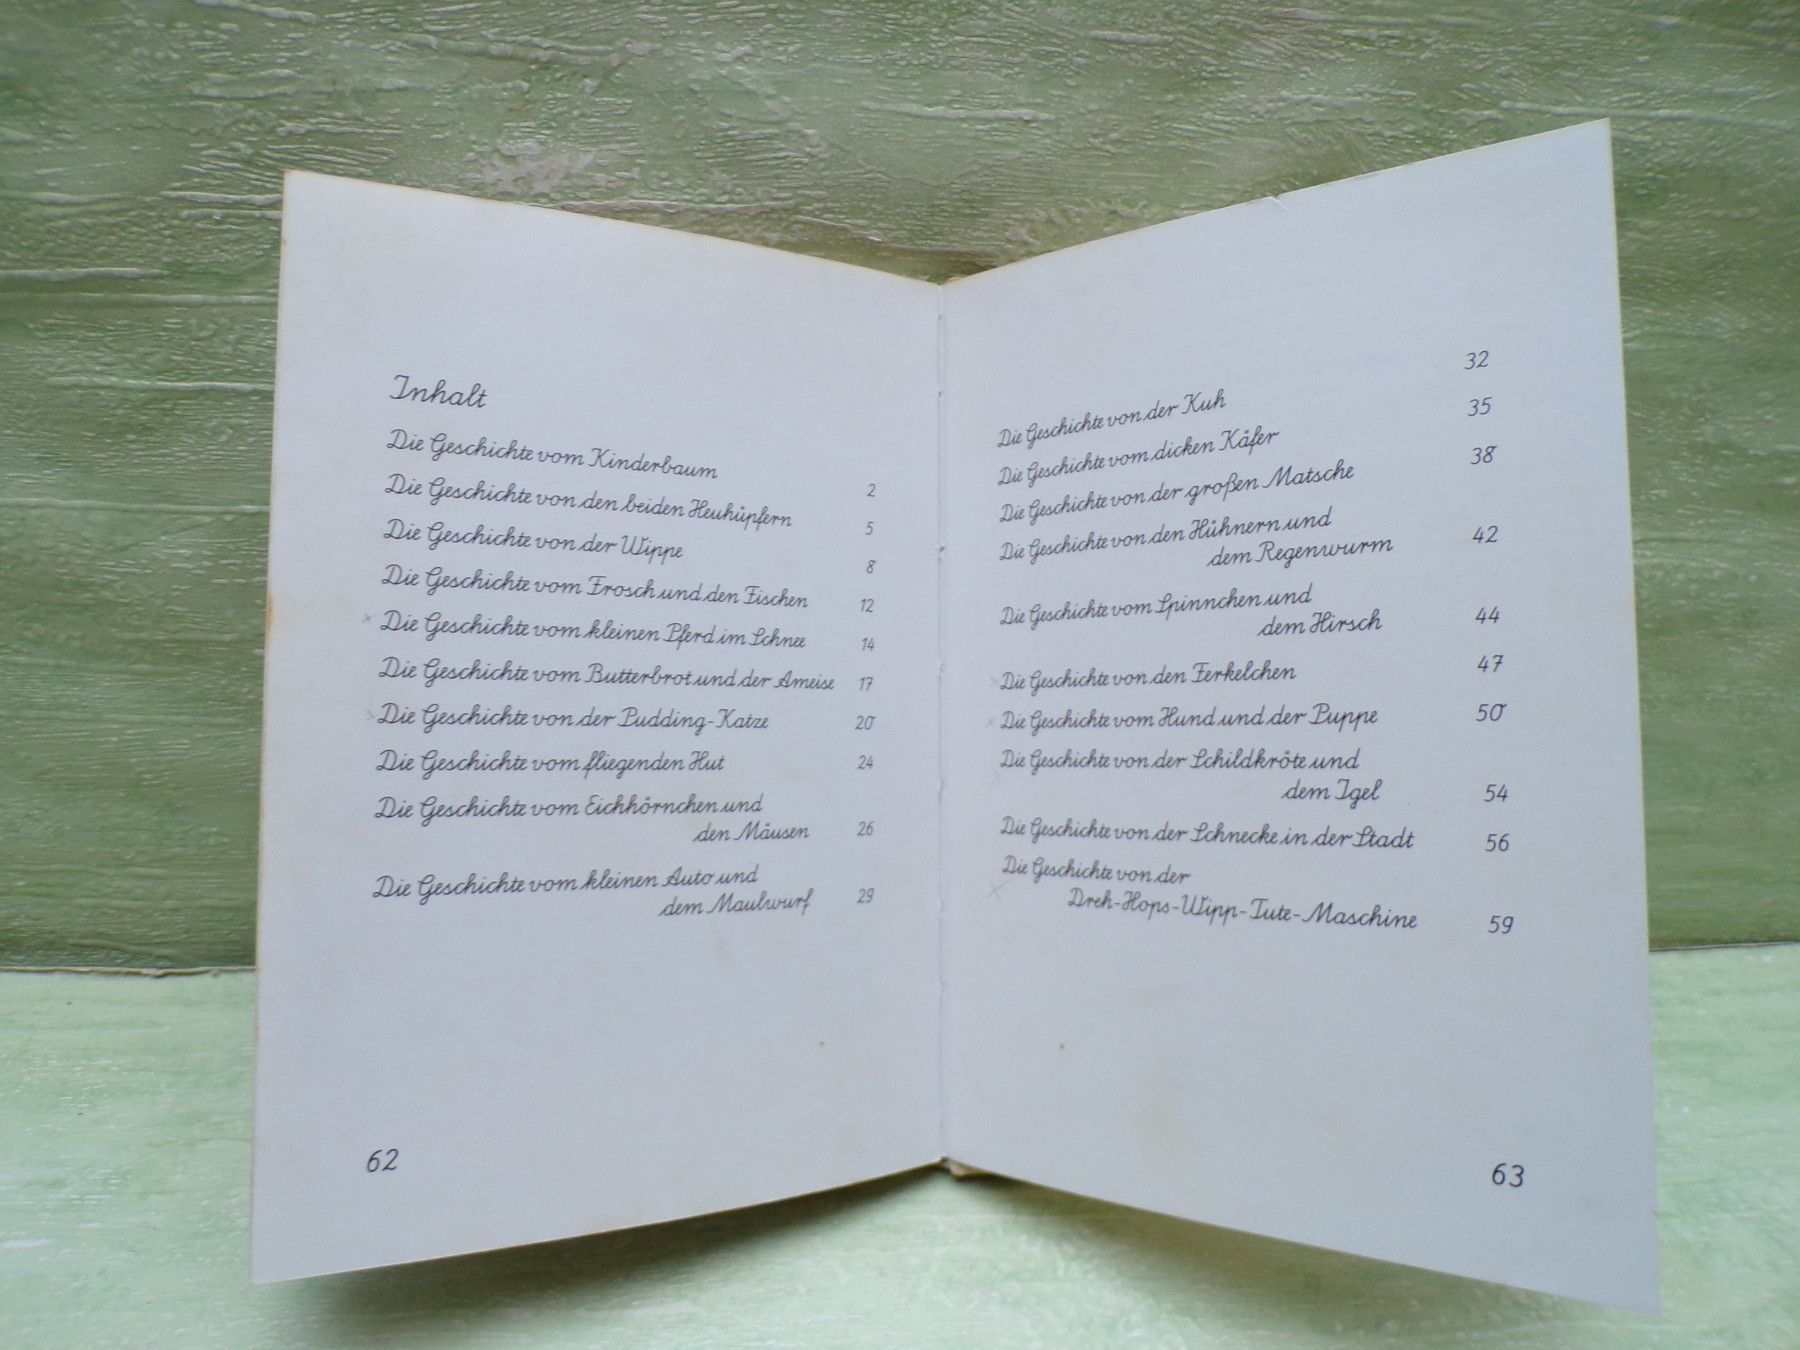 Inhalt
Die Geschichte vom Kinderbaum 2
Die Geschichte von den beiden Heuhüpfern 5
Die Geschichte von der Wippe 8
Die Geschichte vom Frosch und den Fischen 12
Die Geschichte vom kleinen Pferd im Schnee 14
Die Geschichte vom Butterbrot und der Ameise 17
Die Geschichte von der Pudding-Katze 20
Die Geschichte vom fliegenden Hut 24
Die Geschichte vom Eichhörnchen und
den Mäusen 26
Die Geschichte vom kleinen Auto und
dem Maulwurf 29
62
Die Geschichte von der Kuh 32
Die Geschichte vom dicken Käfer 35
Die Geschichte von der großen Matsche 38
Die Geschichte von den Hühnern und
dem Regenwurm 42
Die Geschichte vom Spinnchen und
dem Hirsch 44
Die Geschichte von den Ferkelchen 47
Die Geschichte vom Hund und der Puppe 50
Die Geschichte von der Schildkröte und
dem Igel 54
Die Geschichte von der Schnecke in der Stadt 56
Die Geschichte von der
Dreh-Hops-Wipp-Tute-Maschine 59
63